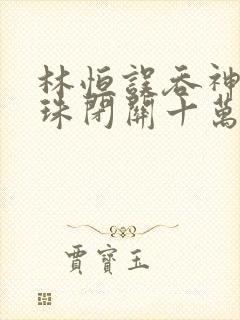 林恒誤吞神
珠閉關十萬
賈寶玉